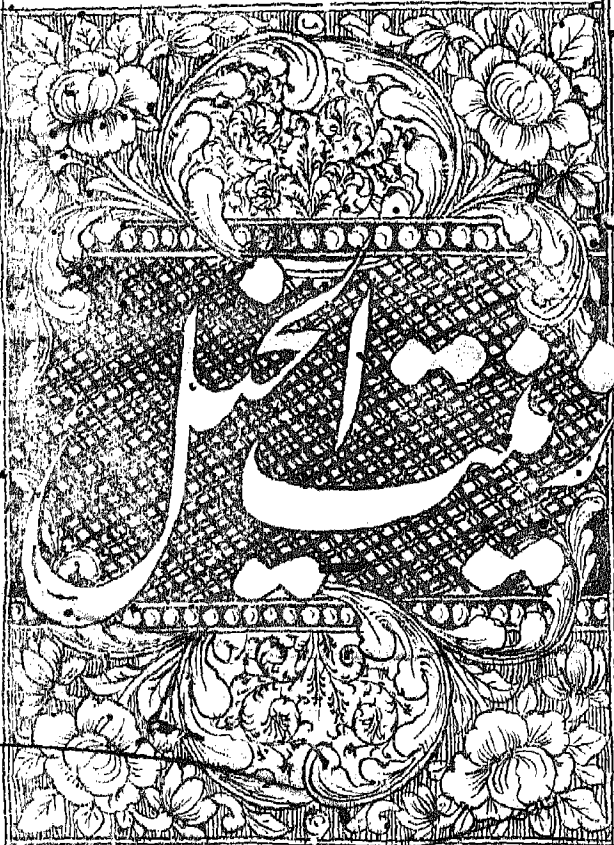 زینت الخیل